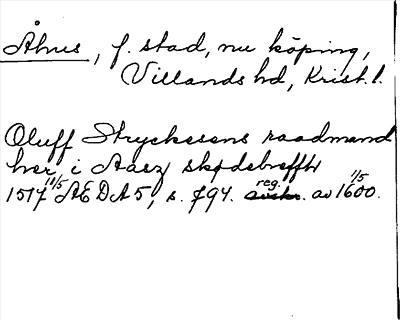 Åhus, f. stad, nu köping,
Villands hd, Krist. l.
Oluff Stryckesens raadmand
her i Aarz skødebreffth
1517 11/5 AEDA 5, s. 794. reg. av 1600. 1/5